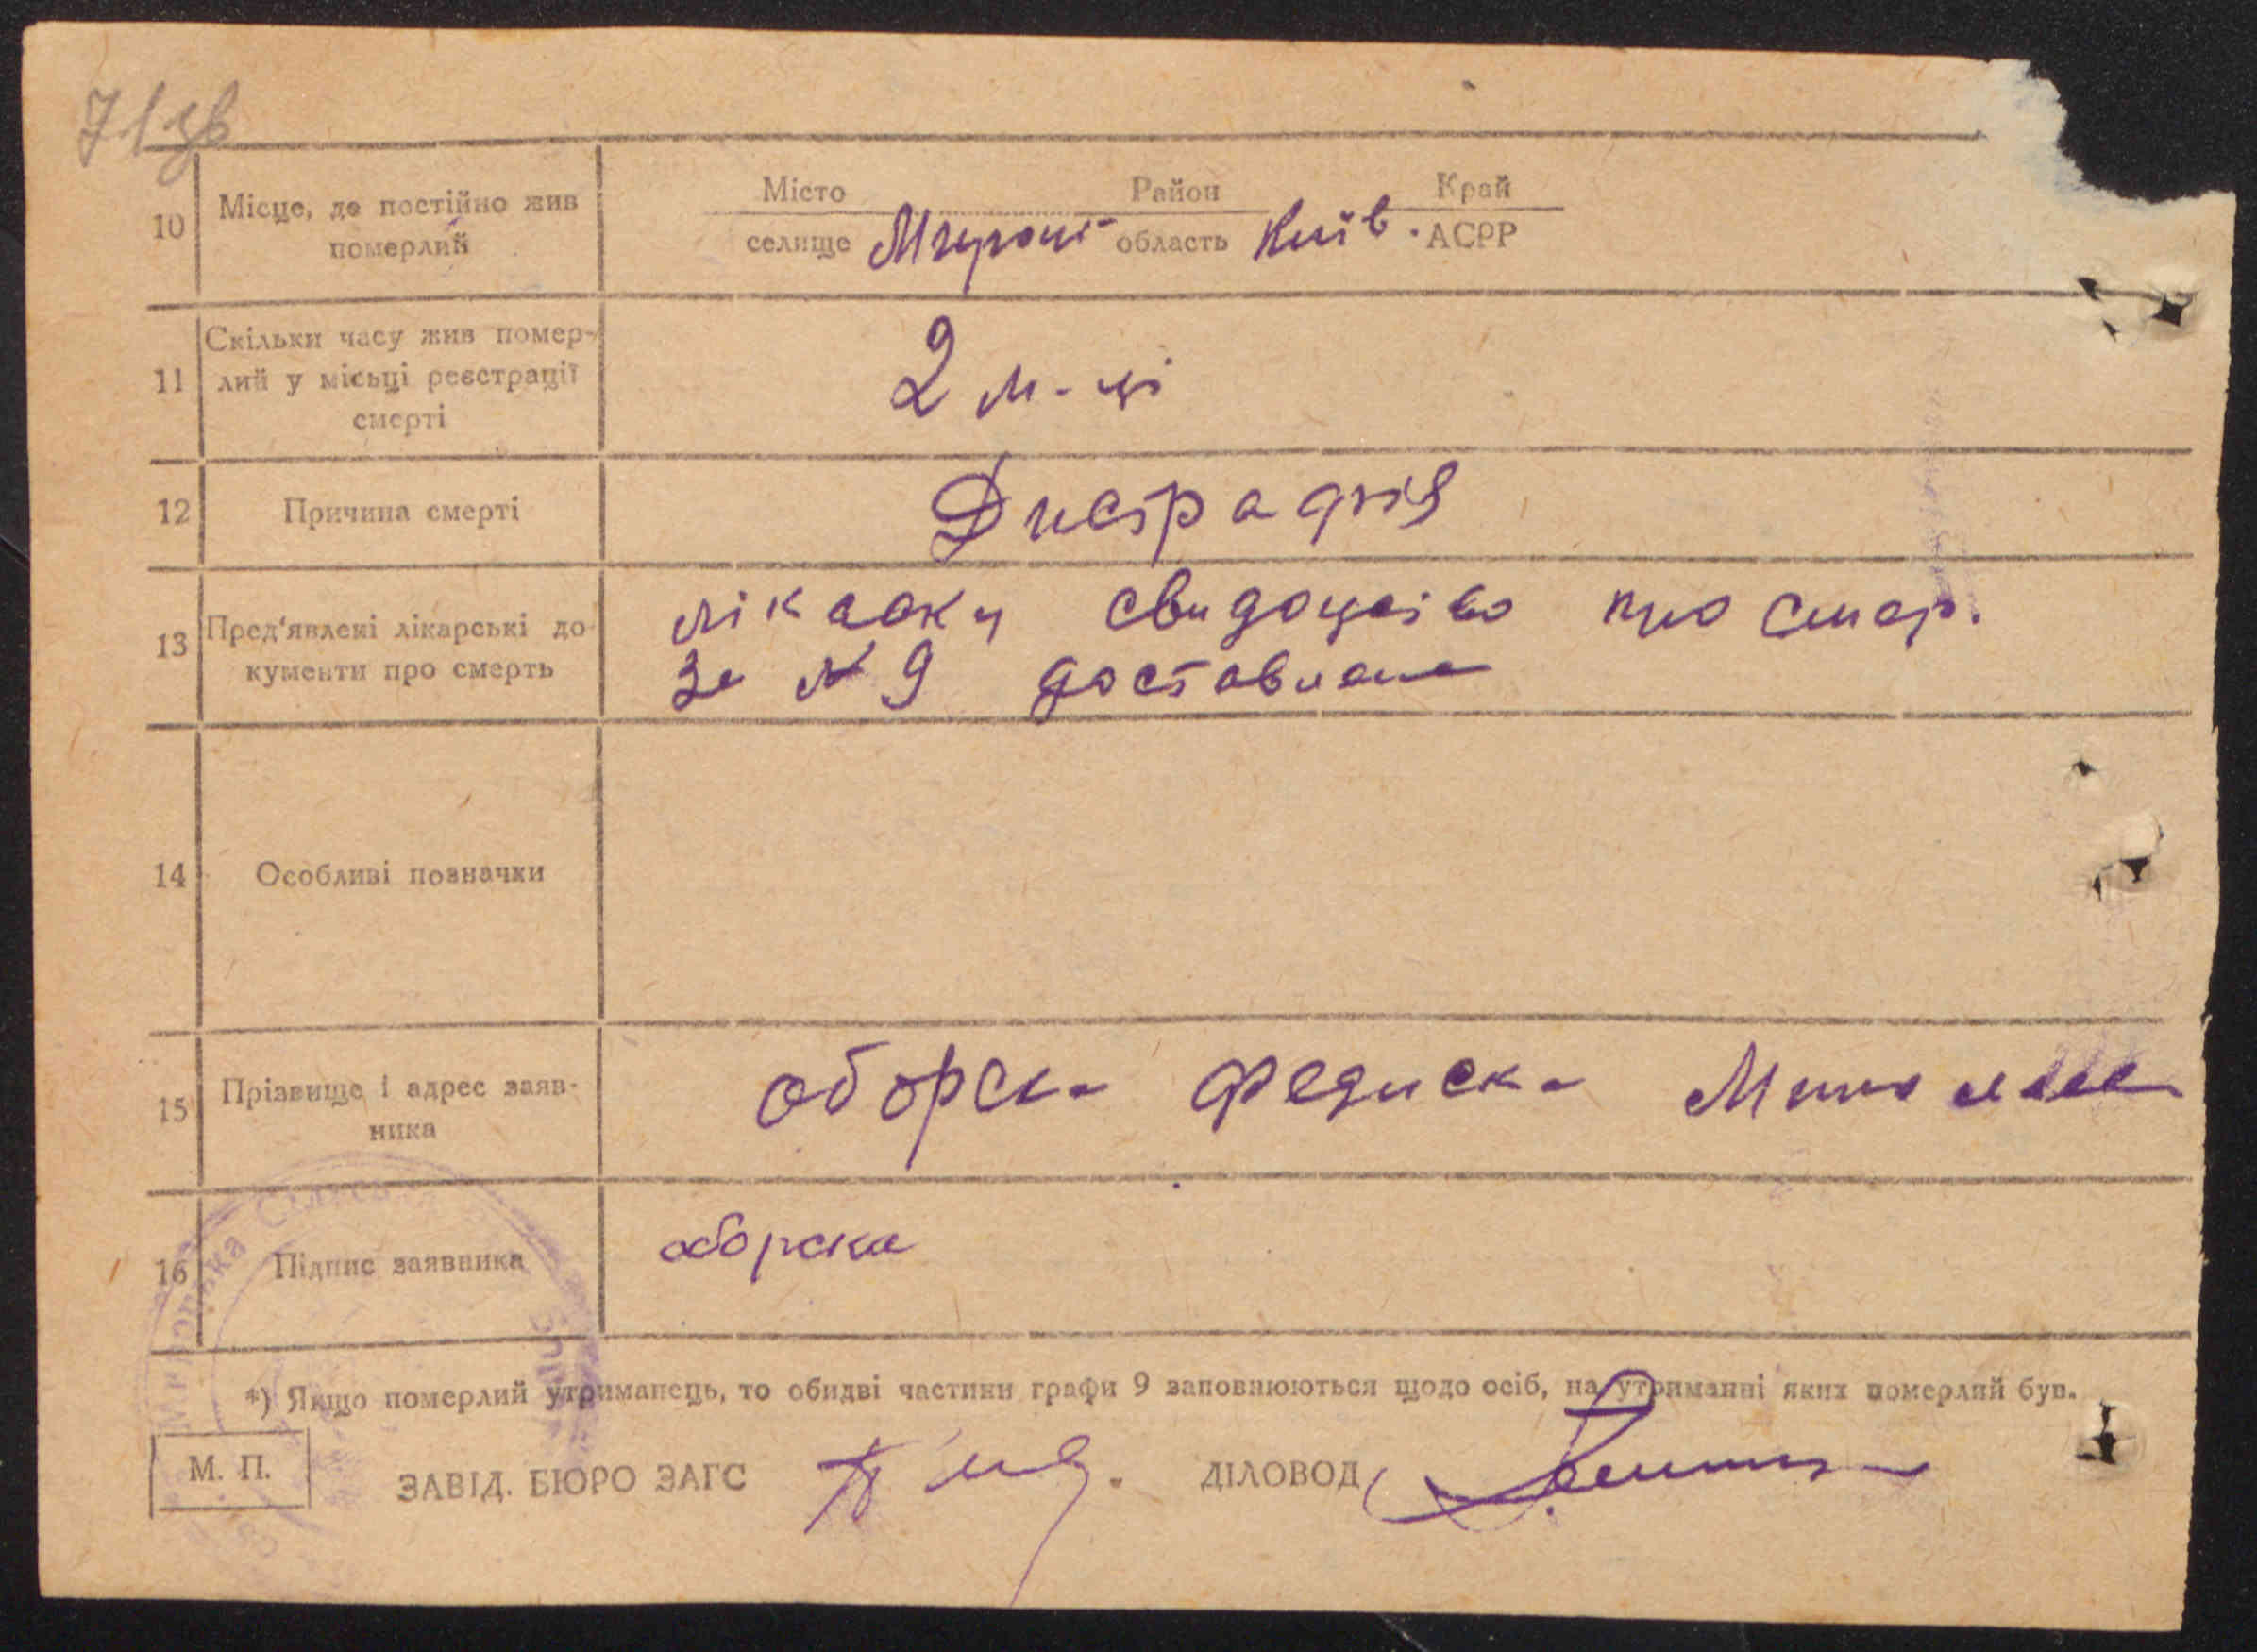 71 зв
Місто Район Край
10 Місце, де постійно жив
померлий
селище область Київ. АСРР
11 Скільки часу жив помер-
лий у місьці реєстрації
смерті
2 м-ці
12 Причина смерті
Дистрафія
13 Пред'явлені лікарські до-
кументи про смерть
свидоцтво про смер.
за № 9 доставлено
14 Особливі позначки
15 Прізвище і адрес заяв-
ника
Оборска
16 Підпис заявника
оборска
*) Якщо померлий утриманець, то обидві частини графи 9 заповнюються щодо осіб, на утриманні яких померлий був.
М. П.
ЗАВІД. БЮРО ЗАГС ДІЛОВОД